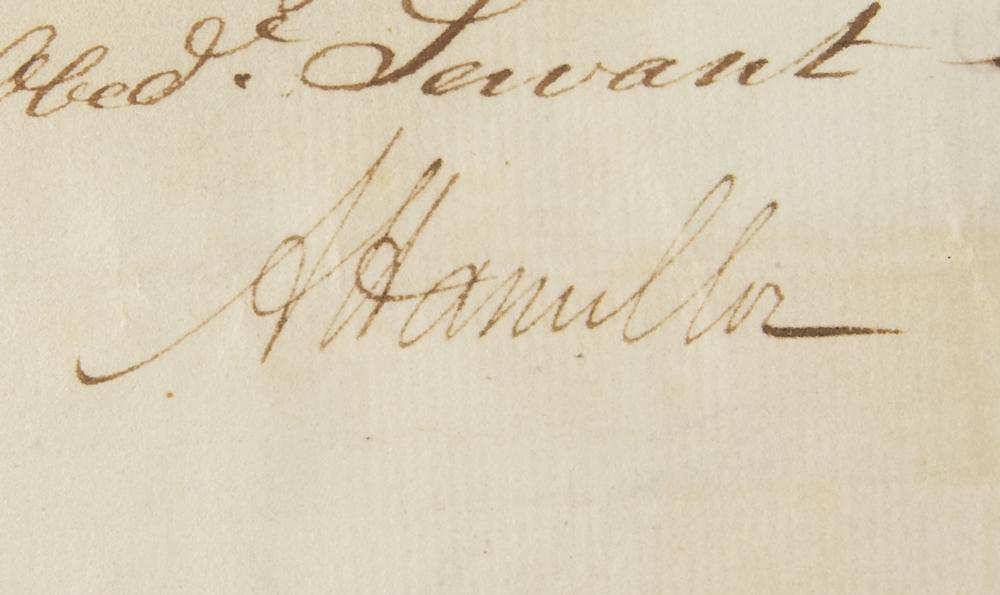 Obedᵗ. Servant
A Hamilton